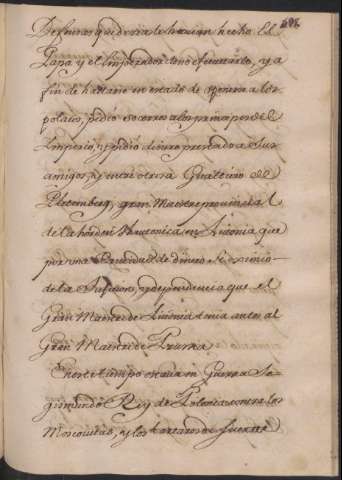 Defensas que decia le havian hecho El
Papa y el Emperador no efectuarlo, y a
fin de hallarse en estado de oponerse a los
polacos, pidio socorros a los principes del
Imperio, y pidio dinero prestado a Sus
amigos, y entre otros a Gualtero de
Pletemberg, gran Maestre provincial
de la horden Theutonica en Livonia, que
por una Cantidad de dinero Se eximio
de la Sujecion, y dependencia que el
Gran Maestre de Livonia tenia antes al
Gran Maestre de Prusia
En este tiempo estava en Guerra Se-
gismundo Rey de Polonia contra los
Moscovitas, y los tartaros de suerte